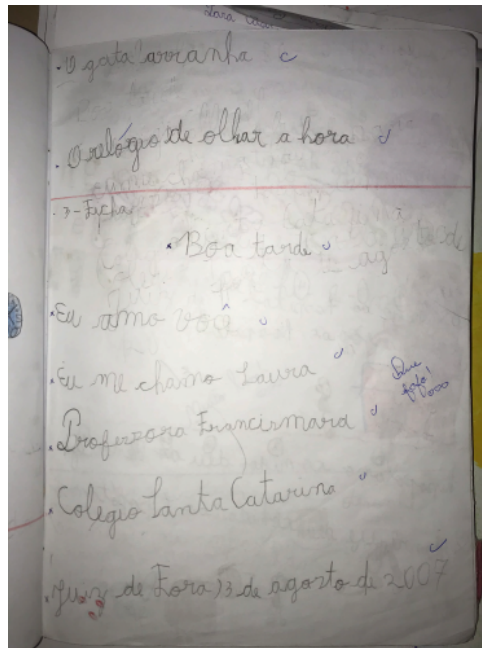 Lara
. O gata arranha
. O relógio de olhar a hora
3 - Ficha
. Boa tarde
. Eu amo você
. Eu me chamo Laura
Que fofo!
. Professora Francismara
. Colégio Santa Catarina
. Juiz de Fora 13 de agosto de 2007